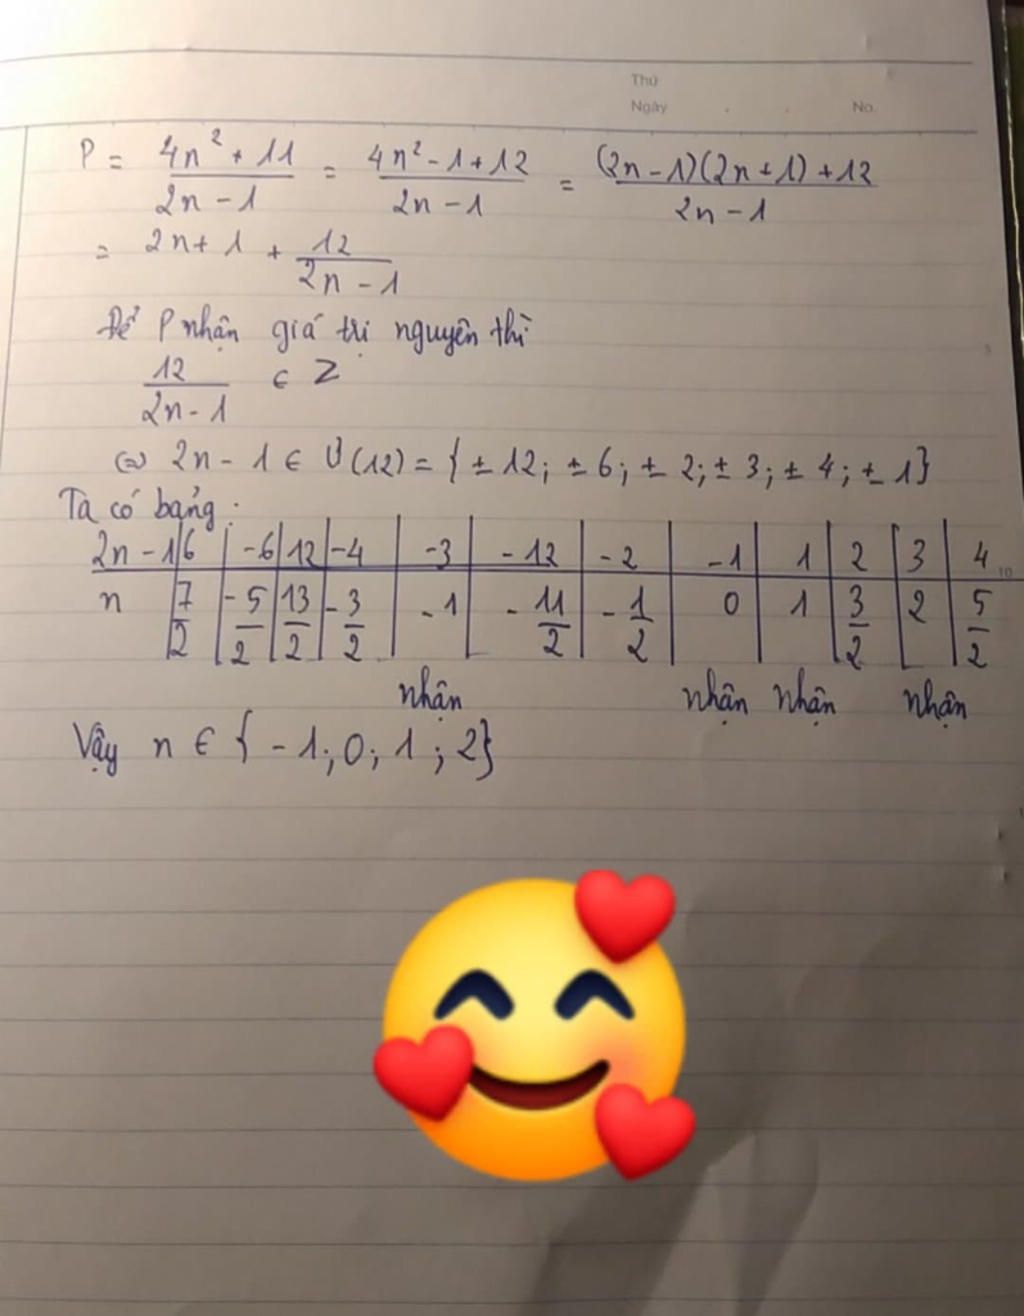 Thứ
Ngày . . No.
P = \frac{4n^2 + 11}{2n - 1} = \frac{4n^2 - 1 + 12}{2n - 1} = \frac{(2n - 1)(2n + 1) + 12}{2n - 1}
= 2n + 1 + \frac{12}{2n - 1}
Để P nhận giá trị nguyên thì
\frac{12}{2n - 1} ∈ Z
⇔ 2n - 1 ∈ Ư(12) = { ± 12; ± 6; ± 2; ± 3; ± 4; ± 1}
Ta có bảng :
2n - 1 | 6 | -6 | 12 | -4 | -3 | -12 | -2 | -1 | 1 | 2 | 3 | 4
n | \frac{7}{2} | -\frac{5}{2} | \frac{13}{2} | -\frac{3}{2} | -1 | -\frac{11}{2} | -\frac{1}{2} | 0 | 1 | \frac{3}{2} | 2 | \frac{5}{2}
nhận nhận nhận nhận
Vậy n ∈ { -1; 0; 1; 2}
5
10